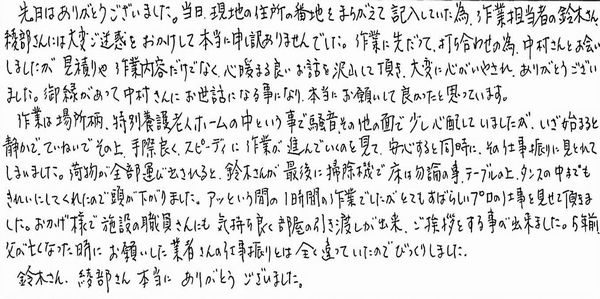 先日はありがとうございました。当日、現地の住所の番地をまちがえて記入していた為、作業担当者の鈴木さん、
綾部さんには大変ご迷惑をおかけして本当に申し訳ありませんでした。作業に先だって、打ち合わせの為、中村さんとお会い
しましたが見積りや作業内容だけでなく、心暖まる良いお話を沢山して頂き、大変に心がいやされ、ありがとうござい
ました。御縁があって中村さんにお世話になる事になり、本当にお願いして良かったと思っています。
作業は場所柄、特別養護老人ホームの中という事で騒音その他の面で少し心配していましたが、いざ始まると
静かで、ていねいでその上、手際良く、スピーディに作業が進んでいくのを見て、安心すると同時に、その仕事振りに見とれて
しまいました。荷物が全部運び出されると、鈴木さんが最後に掃除機で床は勿論の事、テーブルの上、タンスの中までも
きれいにしてくれたので頭が下がりました。アッという間の1時間の作業でしたがとてもすばらしいプロの仕事を見せて頂きま
した。おかげ様で施設の職員さんにも気持ち良く部屋の引き渡しが出来、ご挨拶をする事が出来ました。5年前、
父が亡くなった時にお願いした業者さんの仕事振りとは全く違っていたのでびっくりしました。
鈴木さん、綾部さん本当にありがとうございました。